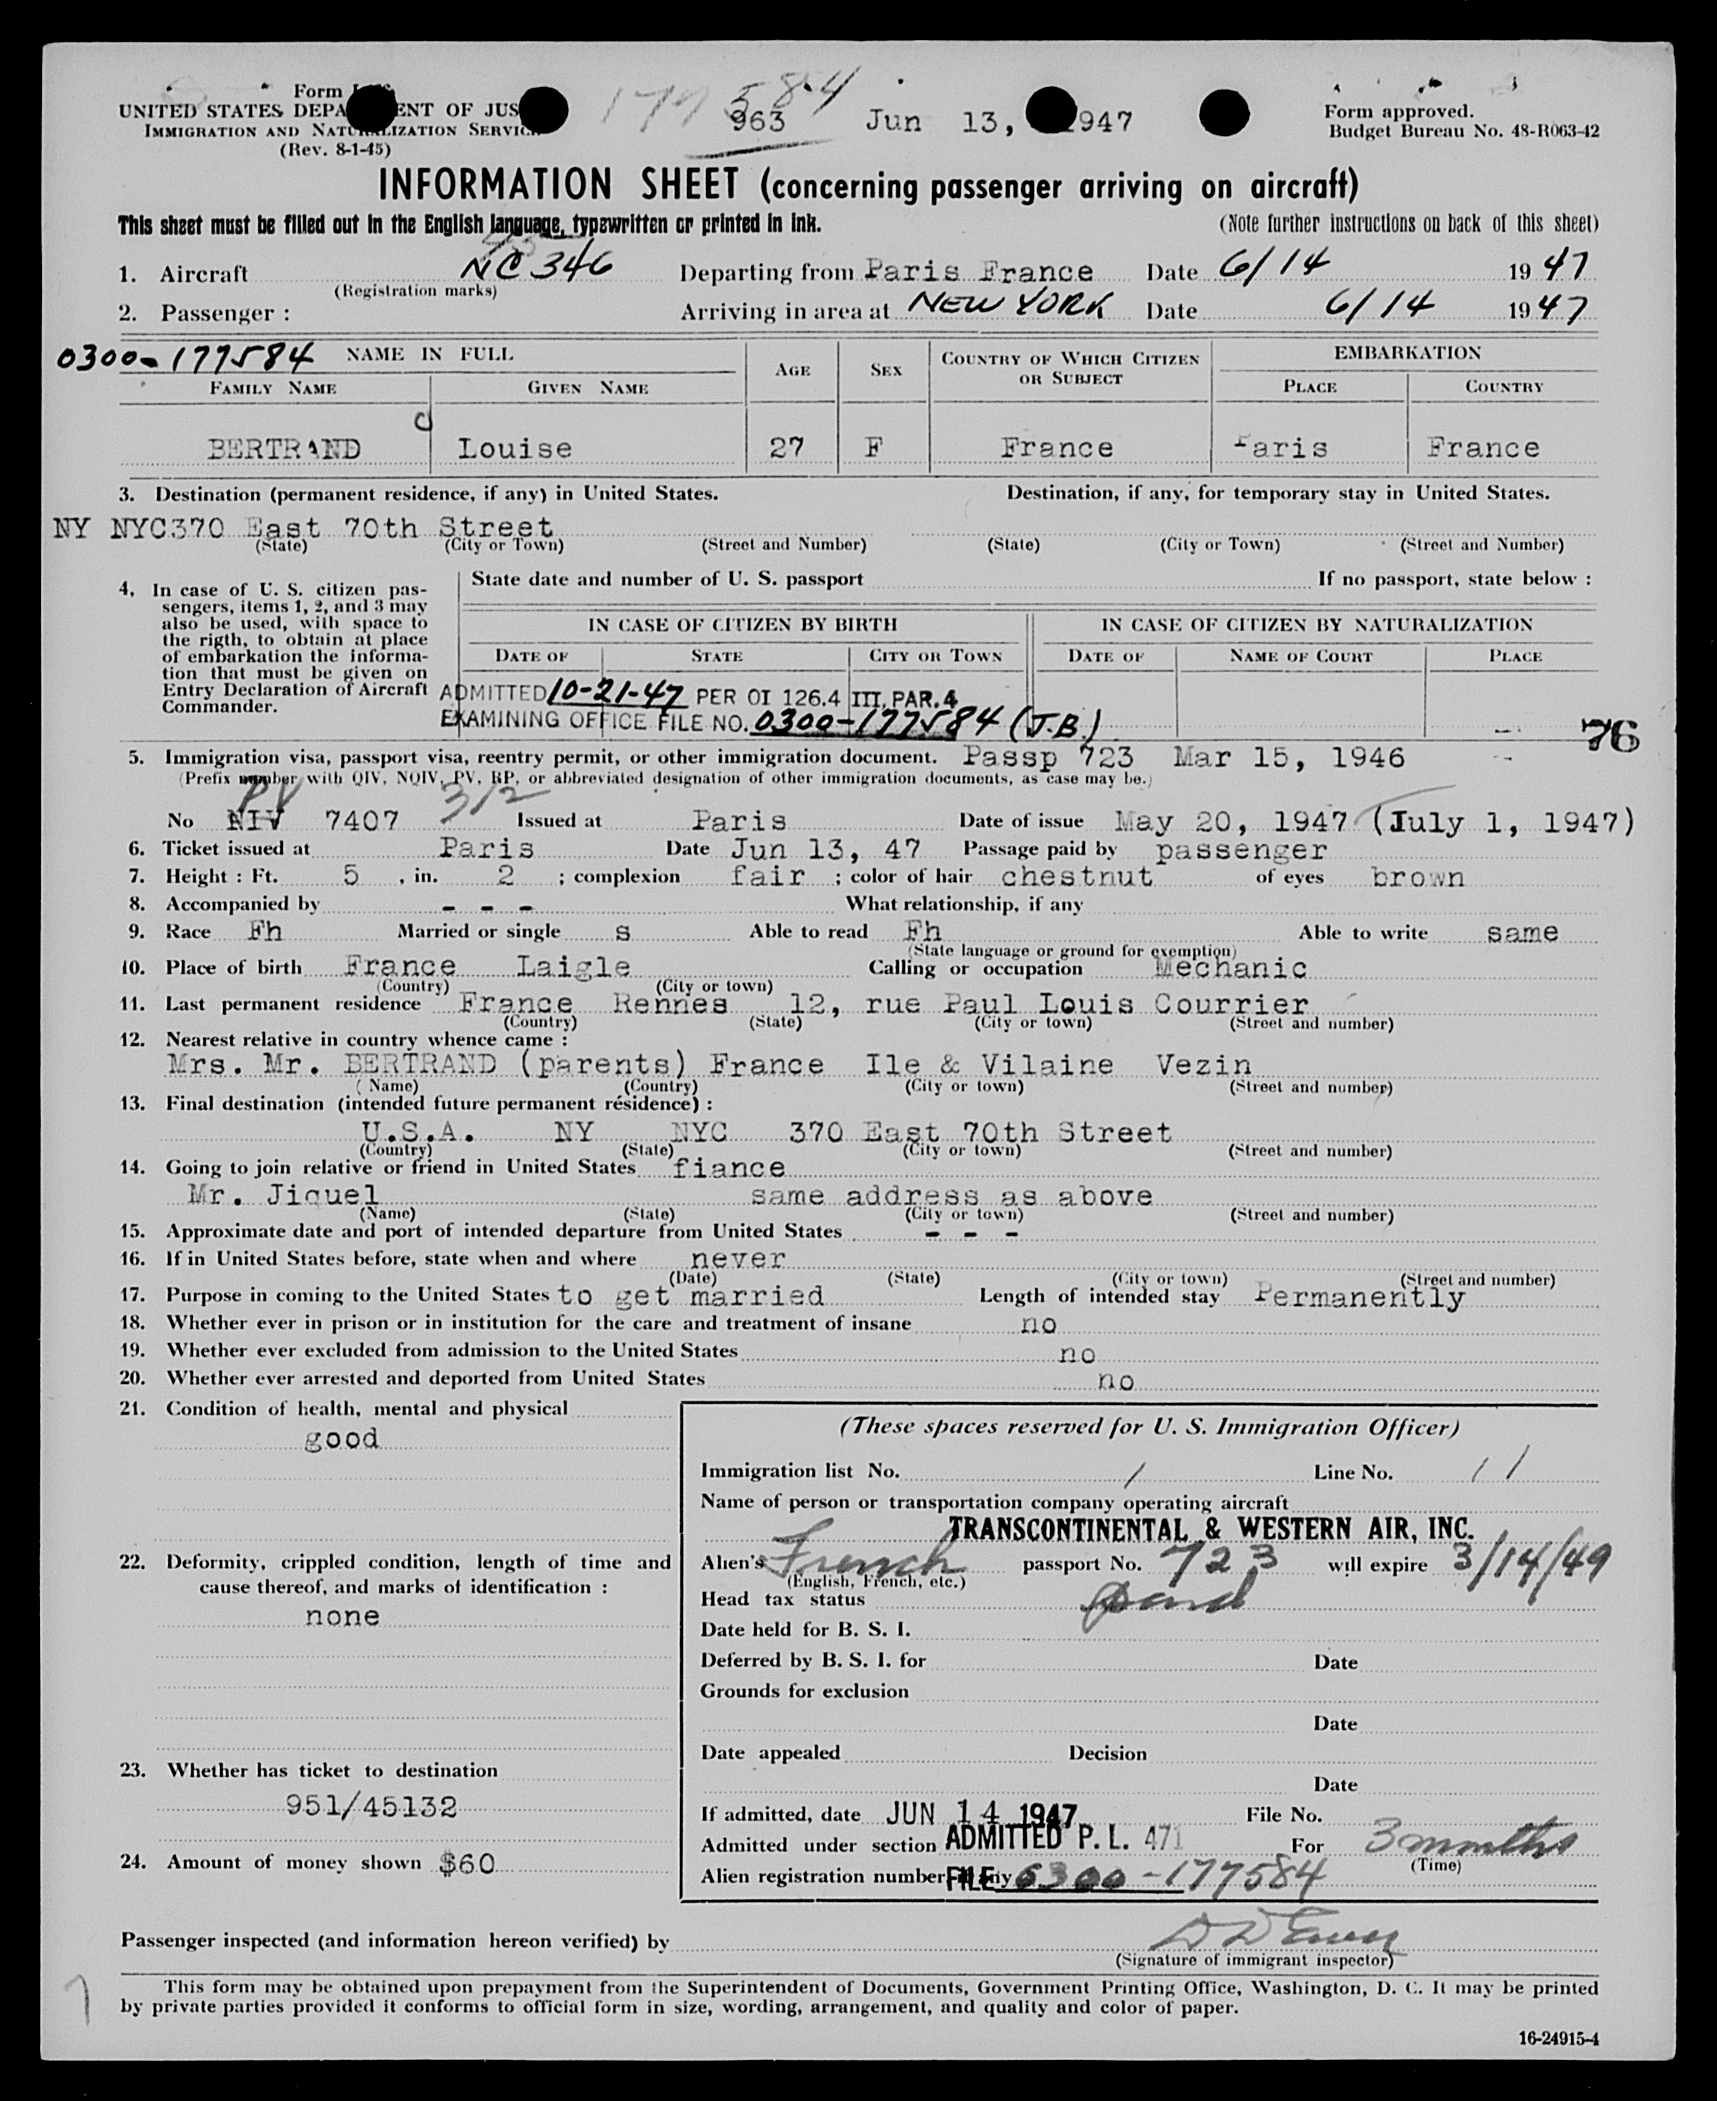 177584
Form
UNITED STATES DEPA ENT OF JUS
963 Jun 13, 1947
Form approved.
IMMIGRATION AND NATURALIZATION SERVICE
Budget Bureau No. 48-R063-42
(Rev. 8-1-45)
INFORMATION SHEET (concerning passenger arriving on aircraft)
This sheet must be filled out in the English language, typewritten or printed in ink.
(Note further instructions on back of this sheet)
1. Aircraft NC 346 Departing from Paris France Date 6/14 1947
(Registration marks)
2. Passenger : Arriving in area at NEW YORK Date 6/14 1947
0300-177584 NAME IN FULL AGE SEX COUNTRY OF WHICH CITIZEN OR SUBJECT EMBARKATION
FAMILY NAME GIVEN NAME PLACE COUNTRY
BERTRAND Louise 27 F France Paris France
3. Destination (permanent residence, if any) in United States. Destination, if any, for temporary stay in United States.
NY NYC370 East 70th Street
(State) (City or Town) (Street and Number) (State) (City or Town) (Street and Number)
4. In case of U. S. citizen pas-
sengers, items 1, 2, and 3 may
also be used, with space to
the rigth, to obtain at place
of embarkation the informa-
tion that must be given on
Entry Declaration of Aircraft
Commander.
State date and number of U. S. passport If no passport, state below :
IN CASE OF CITIZEN BY BIRTH IN CASE OF CITIZEN BY NATURALIZATION
DATE OF STATE CITY OR TOWN DATE OF NAME OF COURT PLACE
ADMITTED 10-21-47 PER OI 126.4 III, PAR. 4
EXAMINING OFFICE FILE NO. 0300-177584 (J.B.)
76
5. Immigration visa, passport visa, reentry permit, or other immigration document. Passp 723 Mar 15, 1946
(Prefix number with QIV, NQIV, PV, RP, or abbreviated designation of other immigration documents, as case may be.)
PV 3/2
No NIV 7407 Issued at Paris Date of issue May 20, 1947 (July 1, 1947)
6. Ticket issued at Paris Date Jun 13, 47 Passage paid by passenger
7. Height : Ft. 5 , in. 2 ; complexion fair ; color of hair chestnut of eyes brown
8. Accompanied by - - - What relationship, if any
9. Race Fh Married or single s Able to read Fh Able to write same
(State language or ground for exemption)
10. Place of birth France Laigle Calling or occupation Mechanic
(Country) (City or town)
11. Last permanent residence France Rennes 12, rue Paul Louis Courrier
(Country) (State) (City or town) (Street and number)
12. Nearest relative in country whence came :
Mrs. Mr. BERTRAND (parents) France Ile & Vilaine Vezin
(Name) (Country) (City or town) (Street and number)
13. Final destination (intended future permanent résidence) :
U.S.A. NY NYC 370 East 70th Street
(Country) (State) (City or town) (Street and number)
14. Going to join relative or friend in United States fiance
Mr. Jiquel same address as above
(Name) (State) (City or town) (Street and number)
15. Approximate date and port of intended departure from United States - - -
16. If in United States before, state when and where never
(Date) (State) (City or town) (Street and number)
17. Purpose in coming to the United States to get married Length of intended stay Permanently
18. Whether ever in prison or in institution for the care and treatment of insane no
19. Whether ever excluded from admission to the United States no
20. Whether ever arrested and deported from United States no
21. Condition of health, mental and physical
good
22. Deformity, crippled condition, length of time and
cause thereof, and marks of identification :
none
23. Whether has ticket to destination
951/45132
24. Amount of money shown $60
(These spaces reserved for U. S. Immigration Officer)
Immigration list No. 1 Line No. 11
Name of person or transportation company operating aircraft
TRANSCONTINENTAL & WESTERN AIR, INC.
Alien's French passport No. 723 will expire 3/14/49
(English, French, etc.)
Head tax status paid
Date held for B. S. I.
Deferred by B. S. I. for Date
Grounds for exclusion
Date
Date appealed Decision
Date
If admitted, date JUN 14 1947 File No.
Admitted under section ADMITTED P. L. 471 For 3 months
(Time)
Alien registration number, if any FILE 0300-177584
Passenger inspected (and information hereon verified) by
(Signature of immigrant inspector)
This form may be obtained upon prepayment from the Superintendent of Documents, Government Printing Office, Washington, D. C. It may be printed
by private parties provided it conforms to official form in size, wording, arrangement, and quality and color of paper.
16-24915-4